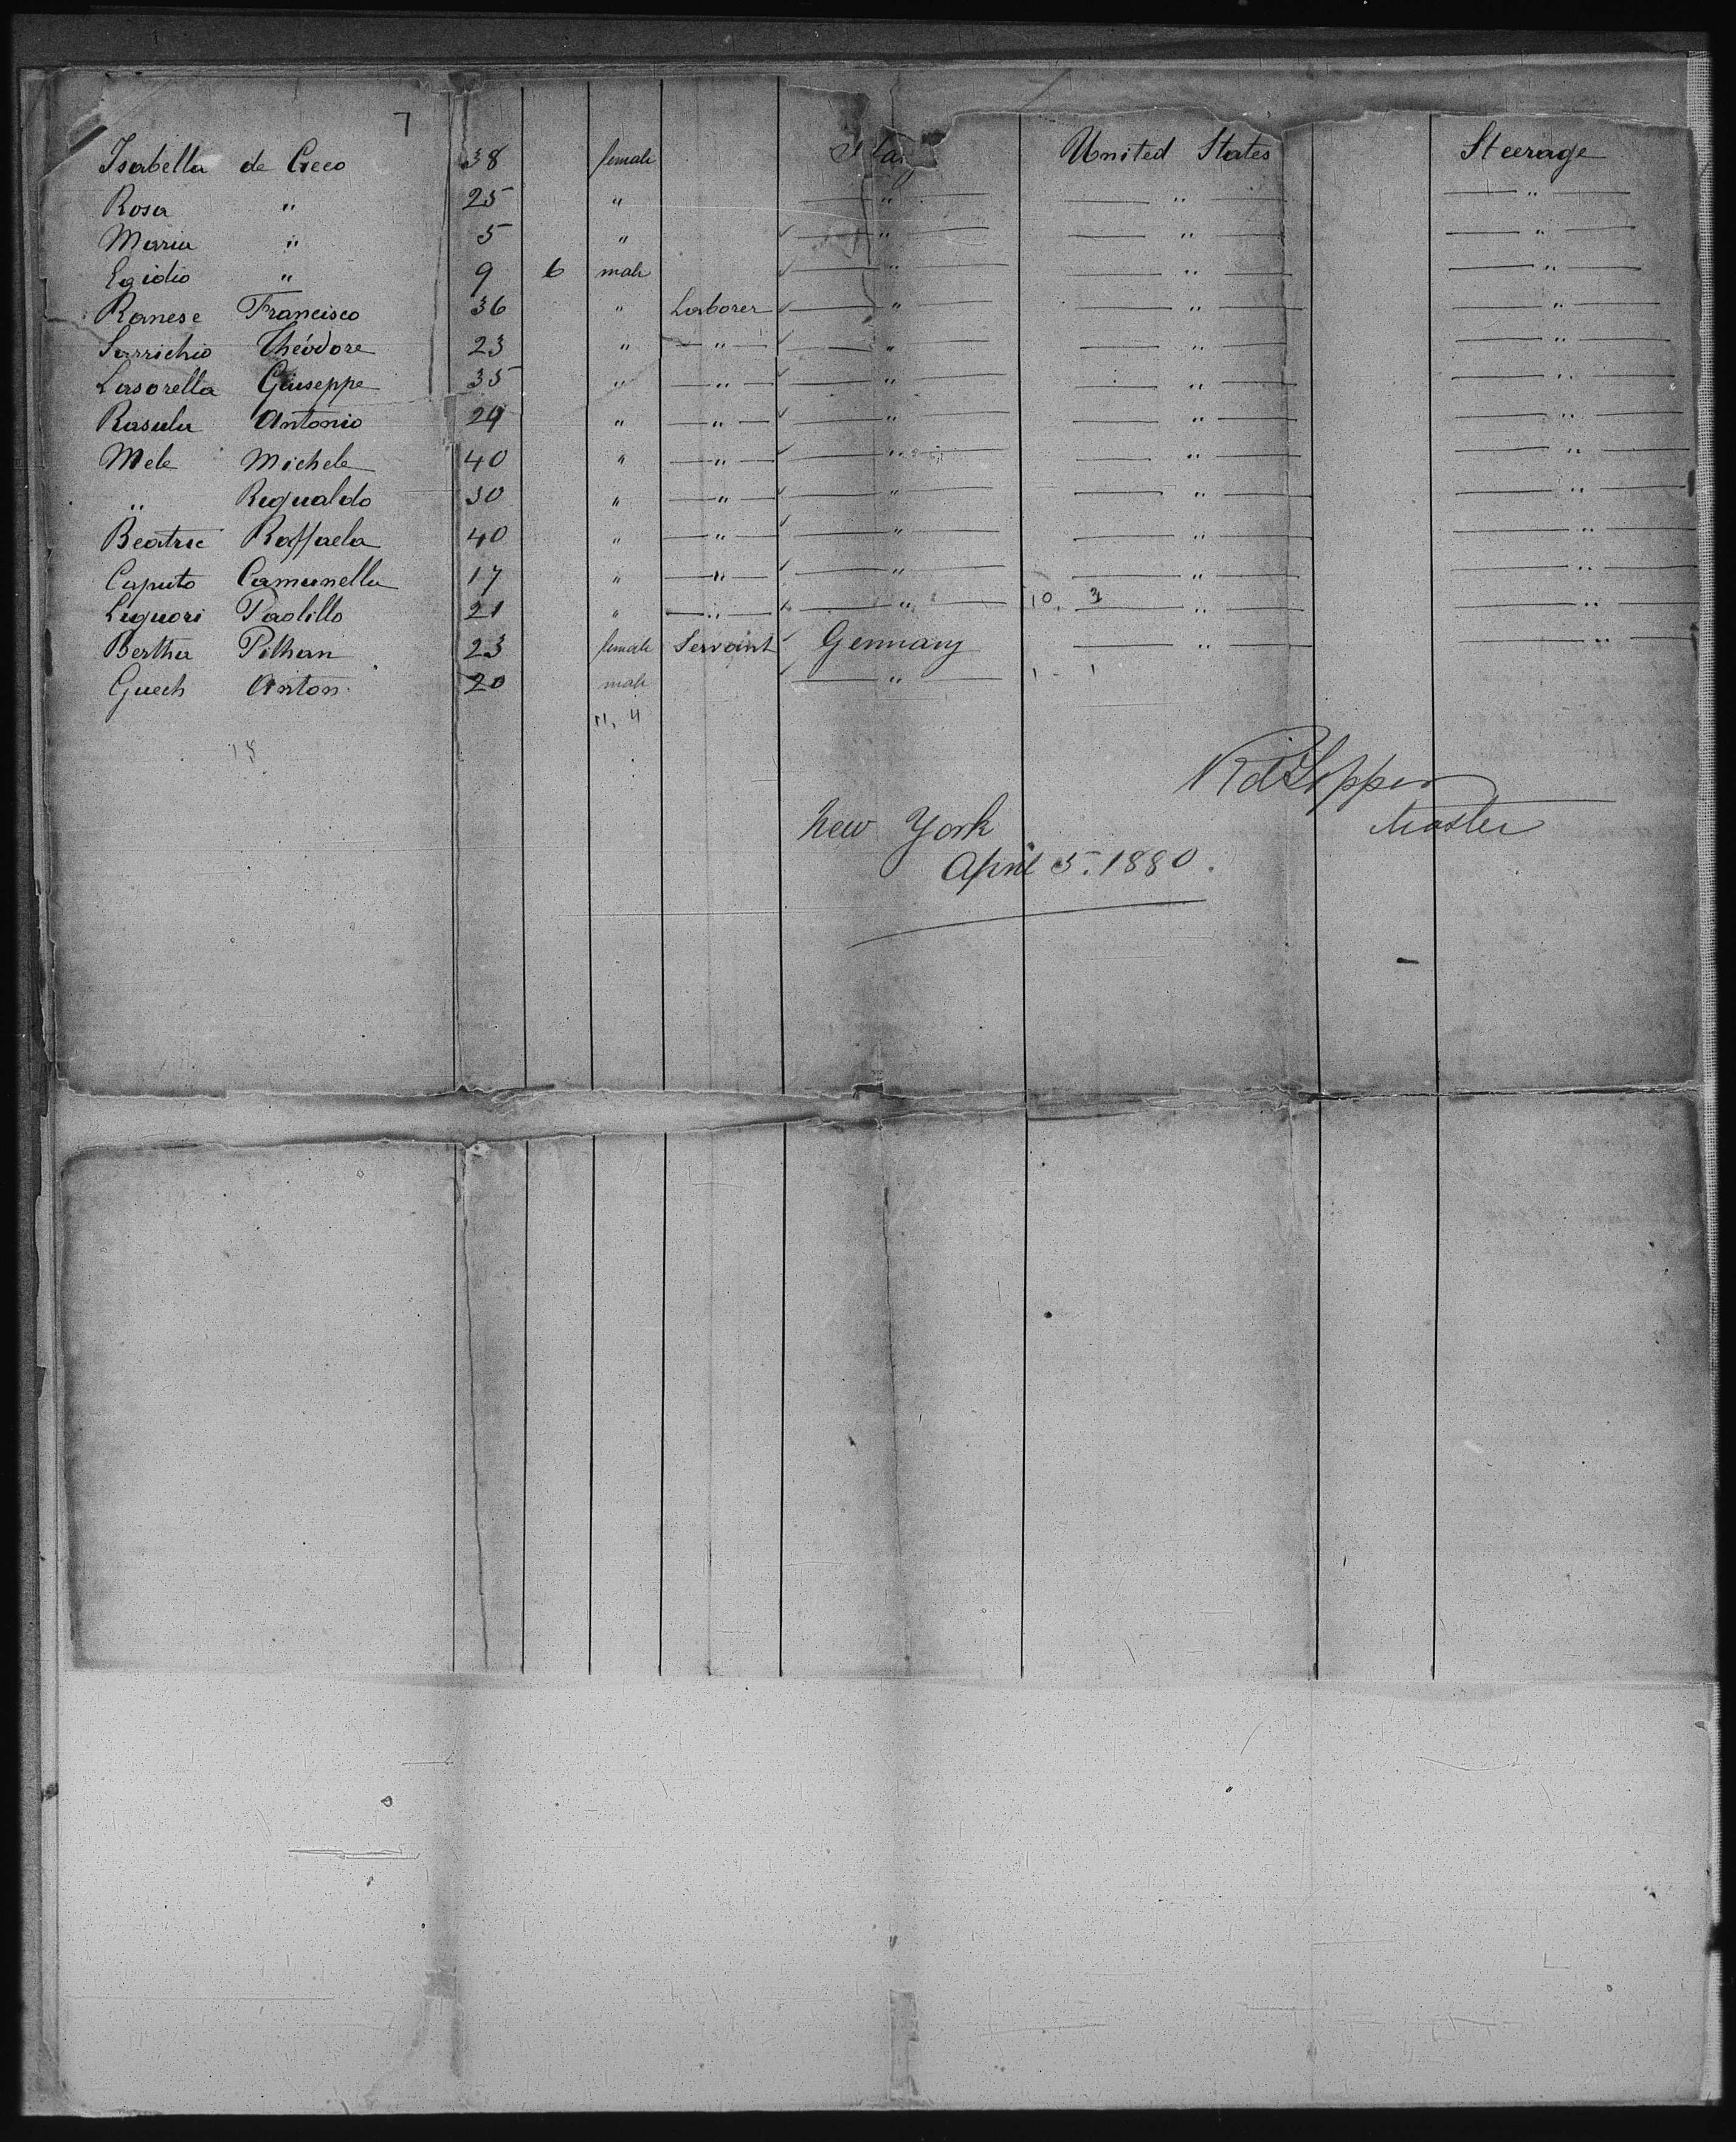 7
Isabella de Creco 38 female Ita United States Steerage
Rosa " 25 " — " — — " — — " —
Maria " 5 " ✓ — " — — " — — " —
Egidio " 9 6 male ✓ — " — — " — — " —
Ranese Francisco 36 " Laborer ✓ — " — — " — — " —
Sarrichio Théodore 23 " — " — ✓ — " — — " — — " —
Lasorella Giuseppe 35 " — " — ✓ — " — — " — — " —
Rasulu Antonio 29 " — " — ✓ — " — — " — — " —
Mele Michele 40 " — " — ✓ — " — — " — — " —
" Rugualdo 30 " — " — ✓ — " — — " — — " —
Beatrie Raffaela 40 " — " — ✓ — " — — " — — " —
Caputo Camunella 17 " — " — ✓ — " — — " — — " —
Liguori Paolillo 21 " — " — ✓ — " — 10. 3 — " — — " —
Bertha Pilhan 23 female Servant ✓ Germany — " — — " —
Guech Anton 20 male ✓ — " — 1 - 1
11, 4
15
Master
New York
April 5. 1880.